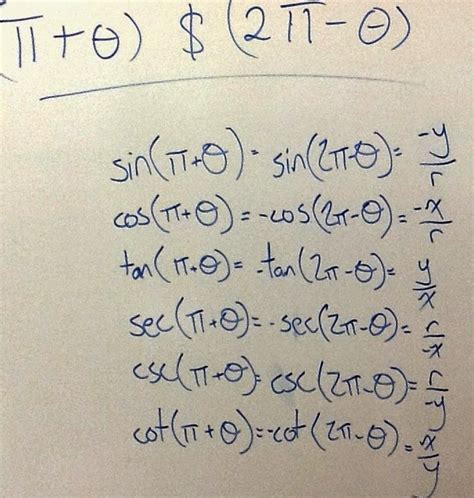 (π+θ) $ (2π-θ)
sin(π+θ) = sin(2π-θ) = -y/r
cos(π+θ) = -cos(2π-θ) = -x/r
tan(π+θ) = -tan(2π-θ) = y/x
sec(π+θ) = -sec(2π-θ) = r/-x
csc(π+θ) = csc(2π-θ) = r/-y
cot(π+θ) = -cot(2π-θ) = x/y